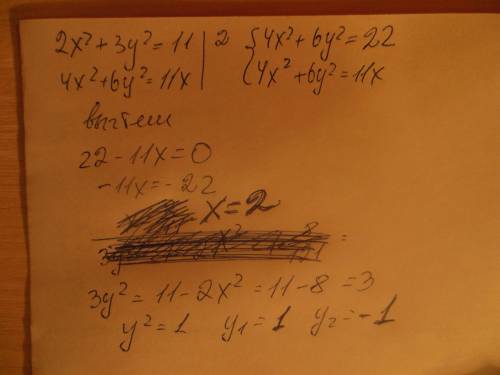 2x²+3y²=11 | 2 {4x²+6y²=22
4x²+6y²=11x | {4x²+6y²=11x
вычтем
22-11x=0
-11x=-22
x=2
3y²=11-2x²=11-8=3
y²=1 y₁=1 y₂=-1